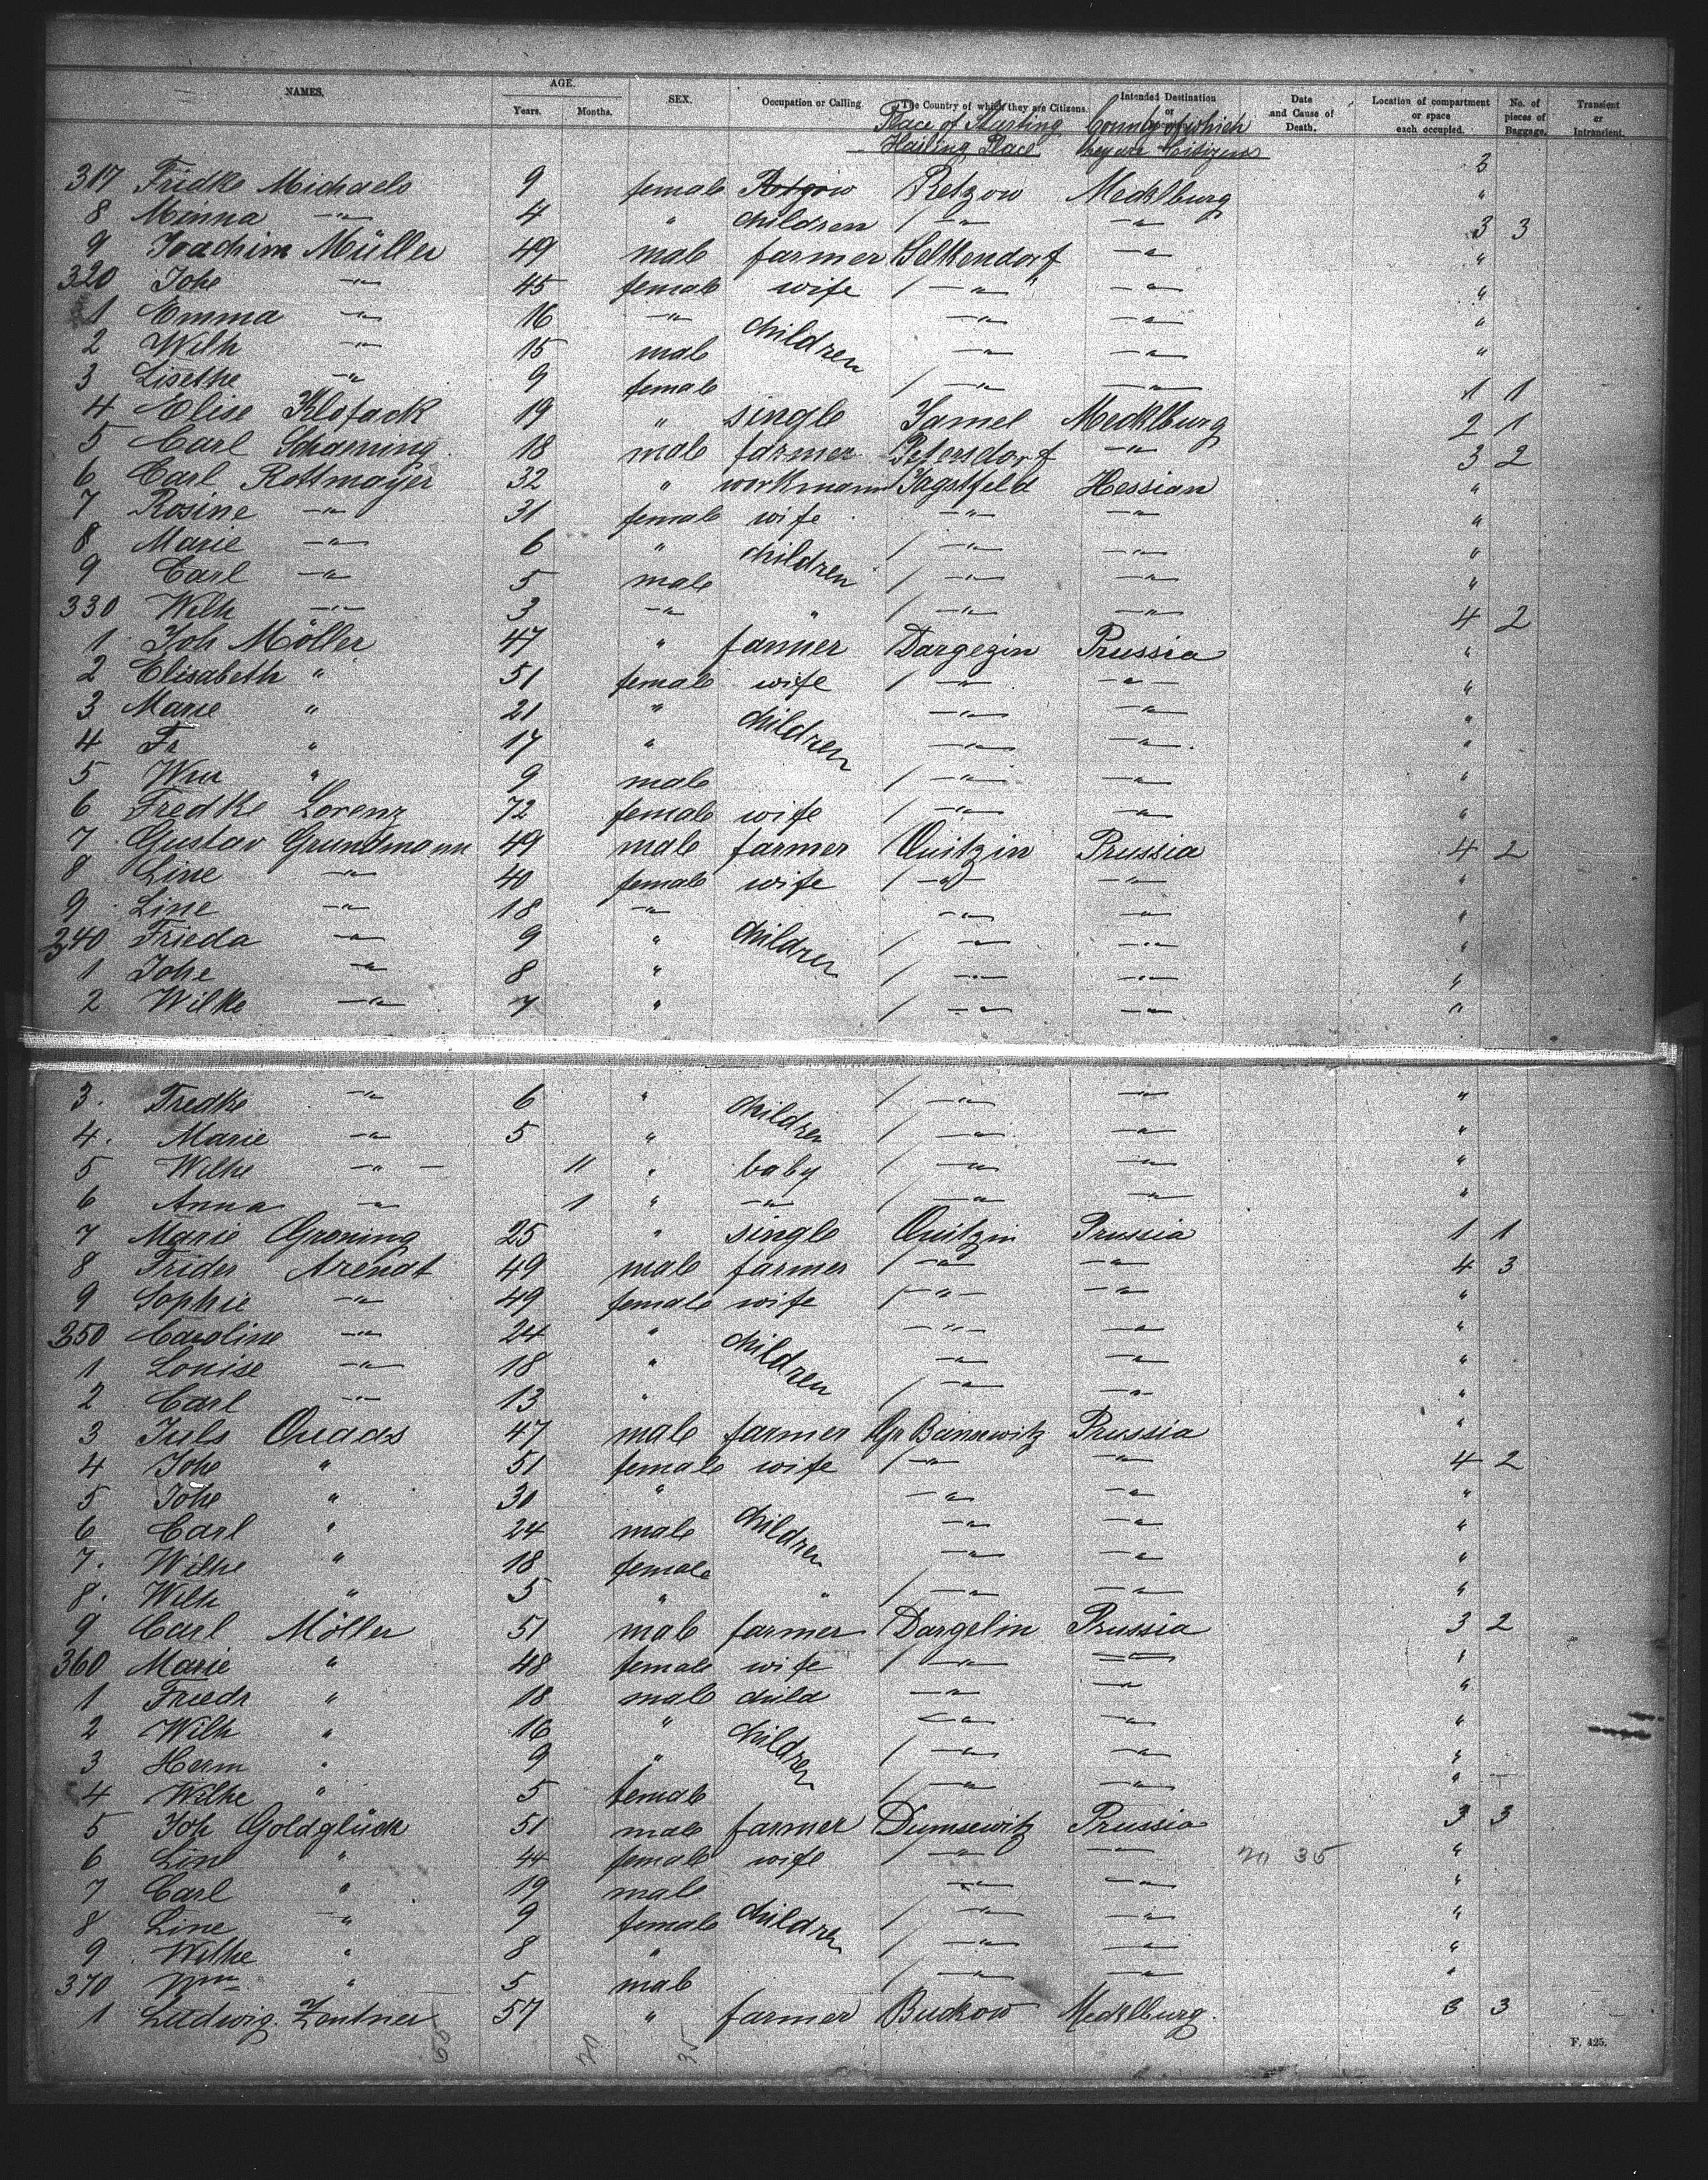 NAMES. AGE. SEX. Occupation or Calling. The Country of which they are Citizens. Intended Destination or Date and Cause of Death. Location of compartment or space each occupied. No. of pieces of Baggage. Transient or Intransient.
Years. Months. Place of Starting Country of which
Hailing Place they are Citizens
3
317 Fridke Michaels 9 female Retzow Retzow Mecklburg "
8 Minna —"— 4 " children —"— —"— 3 3
9 Joachim Müller 49 male farmer Selkendorf —"— "
320 Johe —"— 45 female wife —"— —"— "
1 Emma —"— 16 —"— children —"— —"— "
2 Wilh —"— 15 male —"— —"— "
3 Lisethe —"— 9 female —"— —"— 1 1
4 Elise Klofack 19 " single Jamel Mecklburg 2 1
5 Carl Schaening 18 male farmer Petersdorf —"— 3 2
6 Carl Rottmayer 32 " workmann Jagstfeld Hessian "
7 Rosine —"— 31 female wife —"— —"— "
8 Marie —"— 6 " children —"— —"— "
9 Carl —"— 5 male —"— —"— "
330 Wilh —"— 3 —"— " —"— —"— 4 2
1 Joh Möller 47 " farmer Dargezin Prussia "
2 Elisabeth " 51 female wife —"— —"— "
3 Marie " 21 " children —"— —"— "
4 Fr " 17 " —"— —"— "
5 Wm " 9 male —"— —"— "
6 Fredke Lorenz 72 female wife —"— —"— "
7 Gustav Grundmann 49 male farmer Quitzin Prussia 4 2
8 Line —"— 40 female wife —"— —"— "
9 Line —"— 18 —"— —"— —"— "
340 Frieda —"— 9 " children —"— —"— "
1 Johe —"— 8 " —"— —"— "
2 Wilke —"— 7 " —"— —"— "
3. Fredke —"— 6 " children —"— —"— "
4. Marie —"— 5 " —"— —"— "
5 Wilhe —"— 11 " baby —"— —"— "
6 Anna —"— 1 " —"— —"— —"— "
7 Marie Groning 25 " single Quitzin Prussia 1 1
8 Frider Arendt 49 male farmer —"— —"— 4 3
9 Sophie —"— 49 female wife —"— —"— "
350 Caroline —"— 24 " children —"— —"— "
1 Louise —"— 18 " —"— —"— "
2 Carl —"— 13 " —"— —"— "
3 Juls Quaas 47 male farmer Gr Prussia "
4 Johe " 51 female wife —"— —"— 4 2
5 Johe " 30 " —"— —"— "
6 Carl " 24 male children —"— —"— "
7. Wilhe " 18 female —"— —"— "
8. Wilh " 5 " " —"— —"— "
9 Carl Möller 51 male farmer Dargelin Prussia 3 2
360 Marie " 48 female wife —"— —"— "
1 Friedr " 18 male child —"— —"— "
2 Wilh " 16 " children —"— —"— "
3 Herm " 9 " —"— —"— "
4 Wilhe " 5 female —"— —"— "
5 Joh Goldglück 51 male farmer Dumsewitz Prussia 3 3
6 Line " 44 female wife —"— —"— 20 35 "
7 Carl " 19 male —"— —"— "
8 Line " 9 female children —"— —"— "
9 Wilhe " 8 " —"— —"— "
370 Wm " 5 male —"— —"— "
1 Ludwig Zentner 57 " farmer Buckow Mecklburg. 3 3
20 35
F. 425.